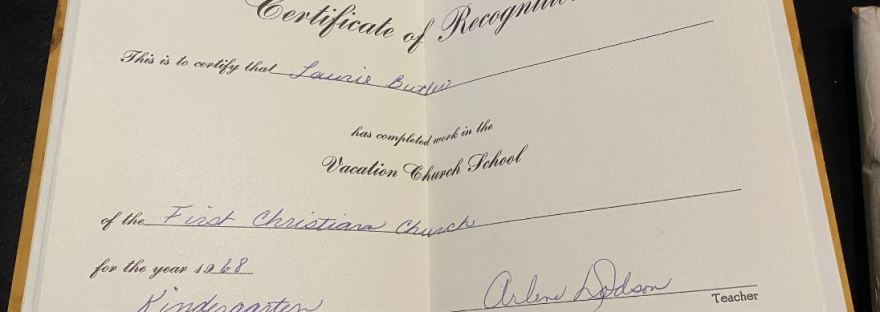 Certificate of Recognition
This is to certify that Laurie Butler
has completed work in the
Vacation Church School
of the First Christian Church
for the year 1968
Kindergarten
Arlene Dodson
Teacher